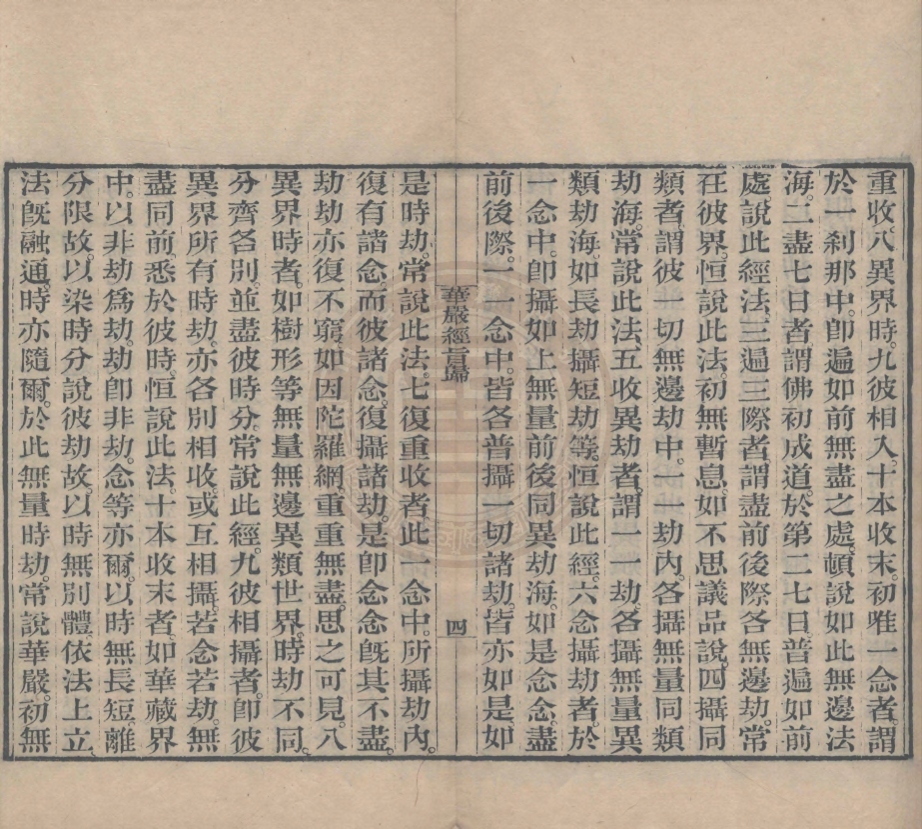 重收。八異界時。九彼相入。十本收末。初唯一念者。謂
於一剎那中。卽遍如前無盡之處。頓說如此無邊法
海。二盡七日者。謂佛初成道。於第二七日。普遍如前
處。說此經法。三遍三際者。謂盡前後際各無邊劫。常
在彼界。恒說此法。初無暫息。如不思議品說。四攝同
類者。謂彼一切無邊劫中。一一劫內。各攝無量同類
劫海。常說此法。五收異劫者。謂一一劫。各攝無量異
類劫海。如長劫攝短劫等。恒說此經。六念攝劫者。於
一念中。卽攝如上無量前後同異劫海。如是念念。盡
前後際。一一念中。皆各普攝一切諸劫。皆亦如是。如
華嚴經旨歸
四
是時劫。常說此法。七復重收者。此一念中。所攝劫內。
復有諸念。而彼諸念。復攝諸劫。是卽念念旣其不盡。
劫劫亦復不窮。如因陀羅網。重重無盡。思之可見。八
異界時者。如樹形等無量無邊異類世界。時劫不同。
分齊各別。並盡彼時分。常說此經。九彼相攝者。卽彼
異界所有時劫。亦各別相收。或互相攝。若念若劫。無
盡同前。悉於彼時。恒說此法。十本收末者。如華藏界
中。以非劫爲劫。劫卽非劫。念等亦爾。以時無長短。離
分限故。以染時分說彼劫故。以時無別體。依法上立。
法旣融通。時亦隨爾。於此無量時劫。常說華嚴。初無